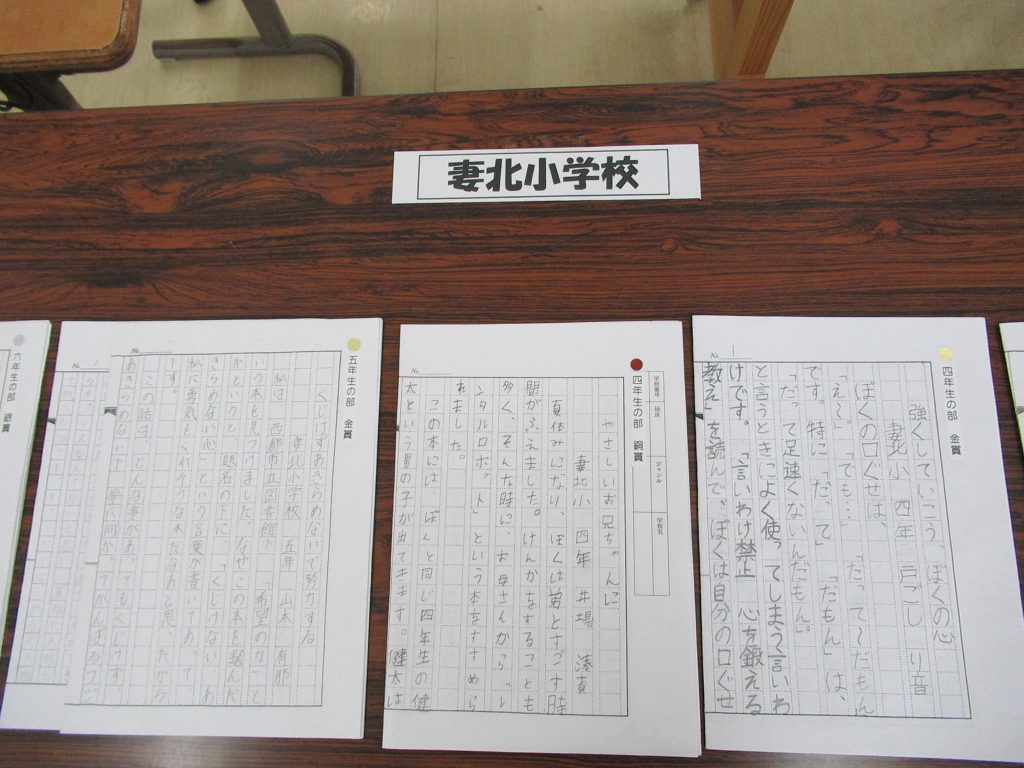 妻北小学校
四年生の部 金賞
No. 1
強くしていこう、ぼくの心
妻北小 四年 戸ごし り音
ぼくの口ぐせは、
「え～。」「でも…」「だって～だもん
です。特に「だって」「だもん」は、
「だって足速くないんだもん。」
と言うときによく使ってしまう言いわ
けです。「言いわけ禁止 心を鍛える
教え」を読んで、ぼくは自分の口ぐせ
四年生の部 銅賞
学校番号 地区 ジャンル 学校名
No.
やさしいお兄ちゃんに
妻北小 四年 井場 湊真
夏休みになり、ぼくは弟とすごす時
間がふえました。けんかをすることも
多く、そんな時に、お母さんから「レ
ンタルロボット」という本をすすめら
れました。
この本には、ぼくと同じ四年生の健
太という男の子が出てきます。健太は
五年生の部 金賞
No.
くじけずあきらめないで努力する
妻北小学校 五年 山本 有那
私は、西都市立図書館で「希望の力」と
いう本を見つけました。なぜこの本を選んだ
かというと、題名の下に、「くじけない あ
きらめない心」という言葉が書いてあって、
私に勇気をくれそうな本だなあと思ったから
です。
この話は、どんな事があってもくじけず、
あきらめないで
六年生の部 銀賞